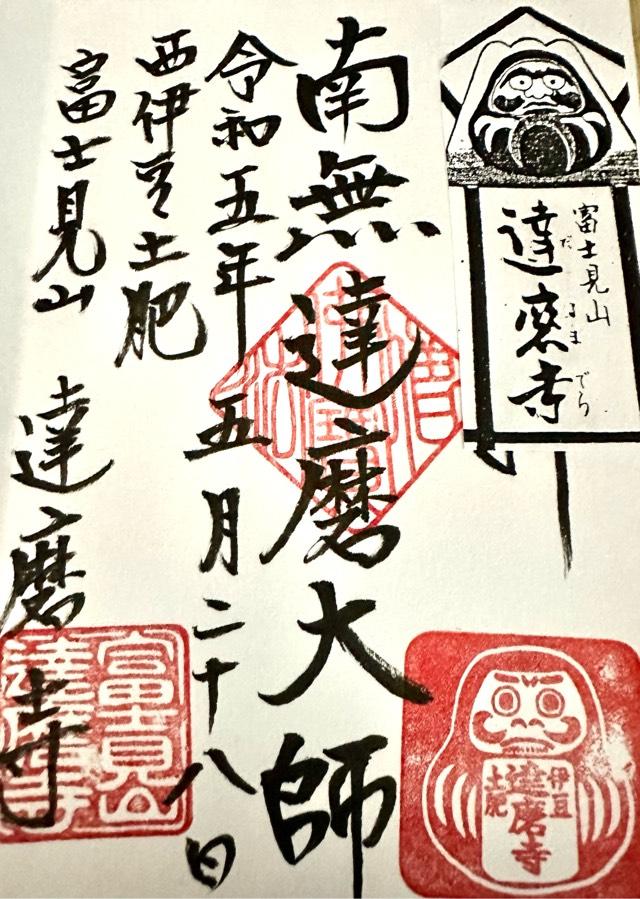 富士見山
達磨寺
だるまでら
南無達磨大師
令和五年五月二十八日
西伊豆土肥
富士見山
達磨寺
伊豆
達磨寺
土肥
富士見山
達磨寺